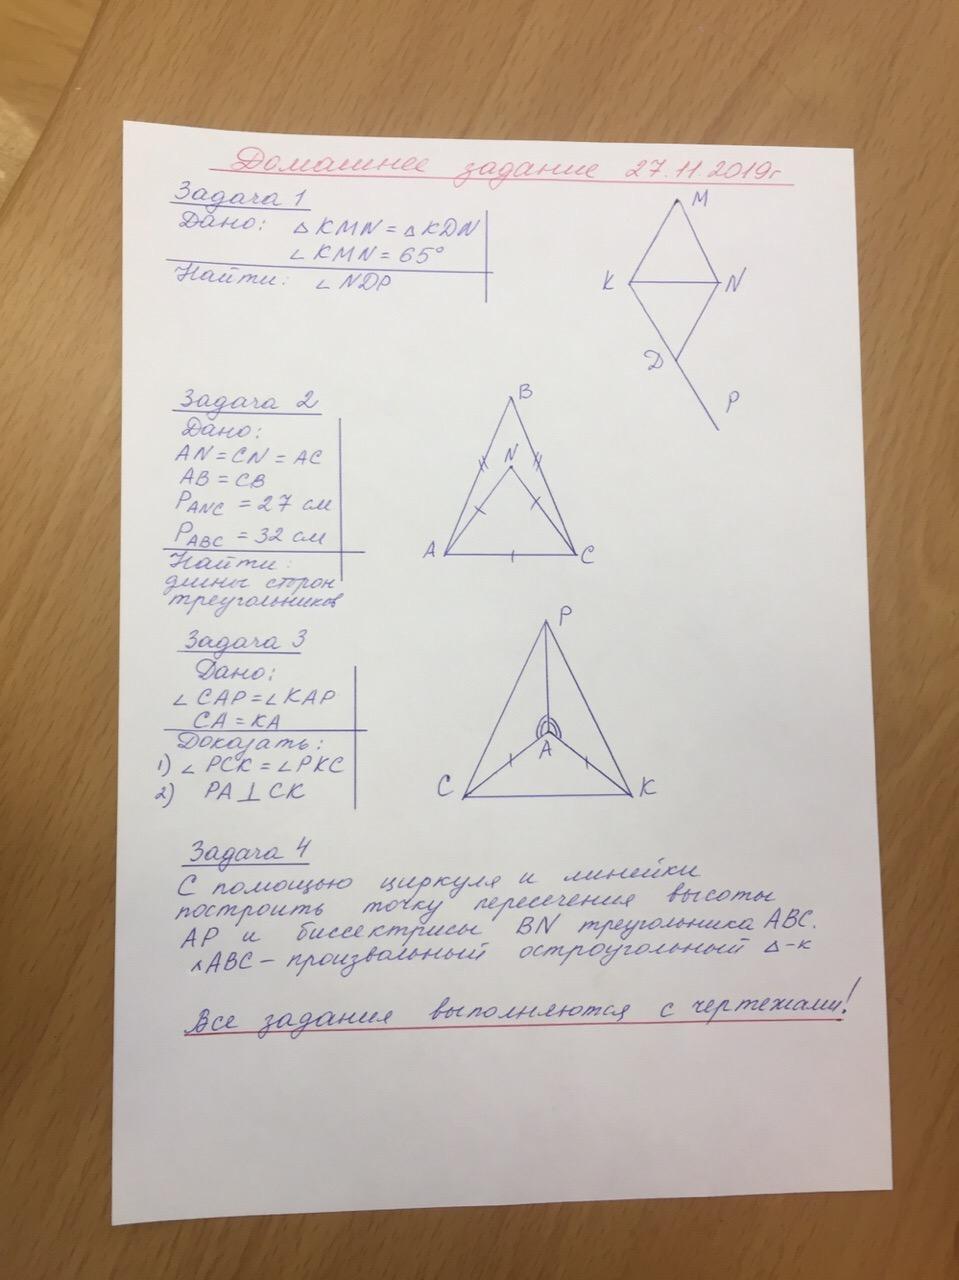 Домашнее задание 27.11.2019г
Задача 1
Дано: △KMN = △KDN
∠KMN = 65°
Найти: ∠NDP
M
K
N
D
P
Задача 2
Дано:
AN = CN = AC
AB = CB
P_ANC = 27 см
P_ABC = 32 см
Найти:
длины сторон
треугольников
B
N
A
C
Задача 3
Дано:
∠CAP = ∠KAP
CA = KA
Доказать:
1) ∠PCK = ∠PKC
2) PA ⊥ CK
P
A
C
K
Задача 4
С помощью циркуля и линейки
построить точку пересечения высоты
AP и биссектрисы BN треугольника ABC.
△ABC – произвольный остроугольный △-к
Все задания выполняются с чертежами!